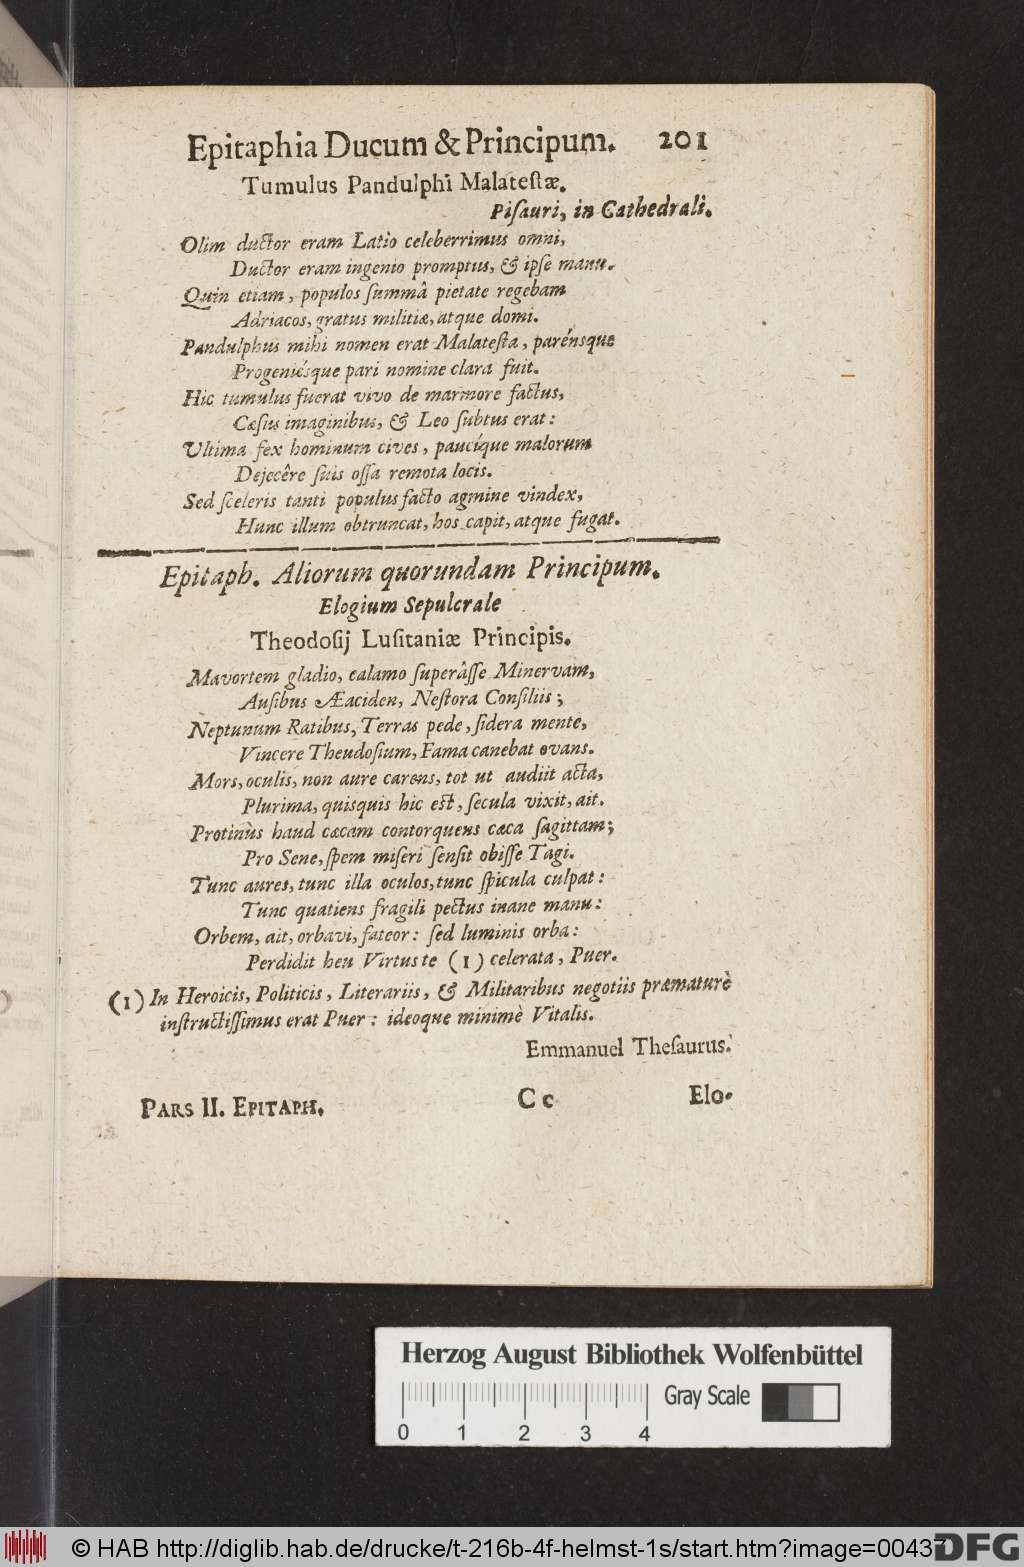 Epitaphia Ducum & Principum. 201
Tumulus Pandulphi Malatestæ.
Piſauri, in Cathedrali.
Olim ductor eram Latio celeberrimus omni,
Ductor eram ingenio promptus, & ipſe manu.
Quin etiam, populos ſummâ pietate regebam
Adriacos, gratus militiæ, atque domi.
Pandulphus mihi nomen erat Malateſta, parénsque
Progeniésque pari nomine clara fuit.
Hic tumulus fuerat vivo de marmore factus,
Cæſus imaginibus, & Leo ſubtus erat:
Ultima fex hominum cives, paucíque malorum
Dejecêre ſuis oſſa remota locis.
Sed ſceleris tanti populus facto agmine vindex,
Hunc illum obtruncat, hos capit, atque fugat.
Epitaph. Aliorum quorundam Principum.
Elogium Sepulcrale
Theodoſij Luſitaniæ Principis.
Mavortem gladio, calamo ſuperâſſe Minervam,
Auſibus Æaciden, Neſtora Conſiliis;
Neptunum Ratibus, Terras pede, ſidera mente,
Vincere Theudoſium, Fama canebat ovans.
Mors, oculis, non aure carens, tot ut audiit acta,
Plurima, quisquis hic eſt, ſecula vixit, ait.
Protinùs haud cæcam contorquens cæca ſagittam;
Pro Sene, ſpem miſeri ſenſit obiſſe Tagi.
Tunc aures, tunc illa oculos, tunc ſpicula culpat:
Tunc quatiens fragili pectus inane manu:
Orbem, ait, orbavi, fateor: ſed luminis orba:
Perdidit heu Virtus te (1) celerata, Puer.
(1) In Heroicis, Politicis, Literariis, & Militaribus negotiis præmaturè
inſtructiſſimus erat Puer: ideoque minimè Vitalis.
Emmanuel Theſaurus.
PARS II. EPITAPH. Cc Elo-
Herzog August Bibliothek Wolfenbüttel
Gray Scale
0 1 2 3 4
© HAB http://diglib.hab.de/drucke/t-216b-4f-helmst-1s/start.htm?image=00437
DFG